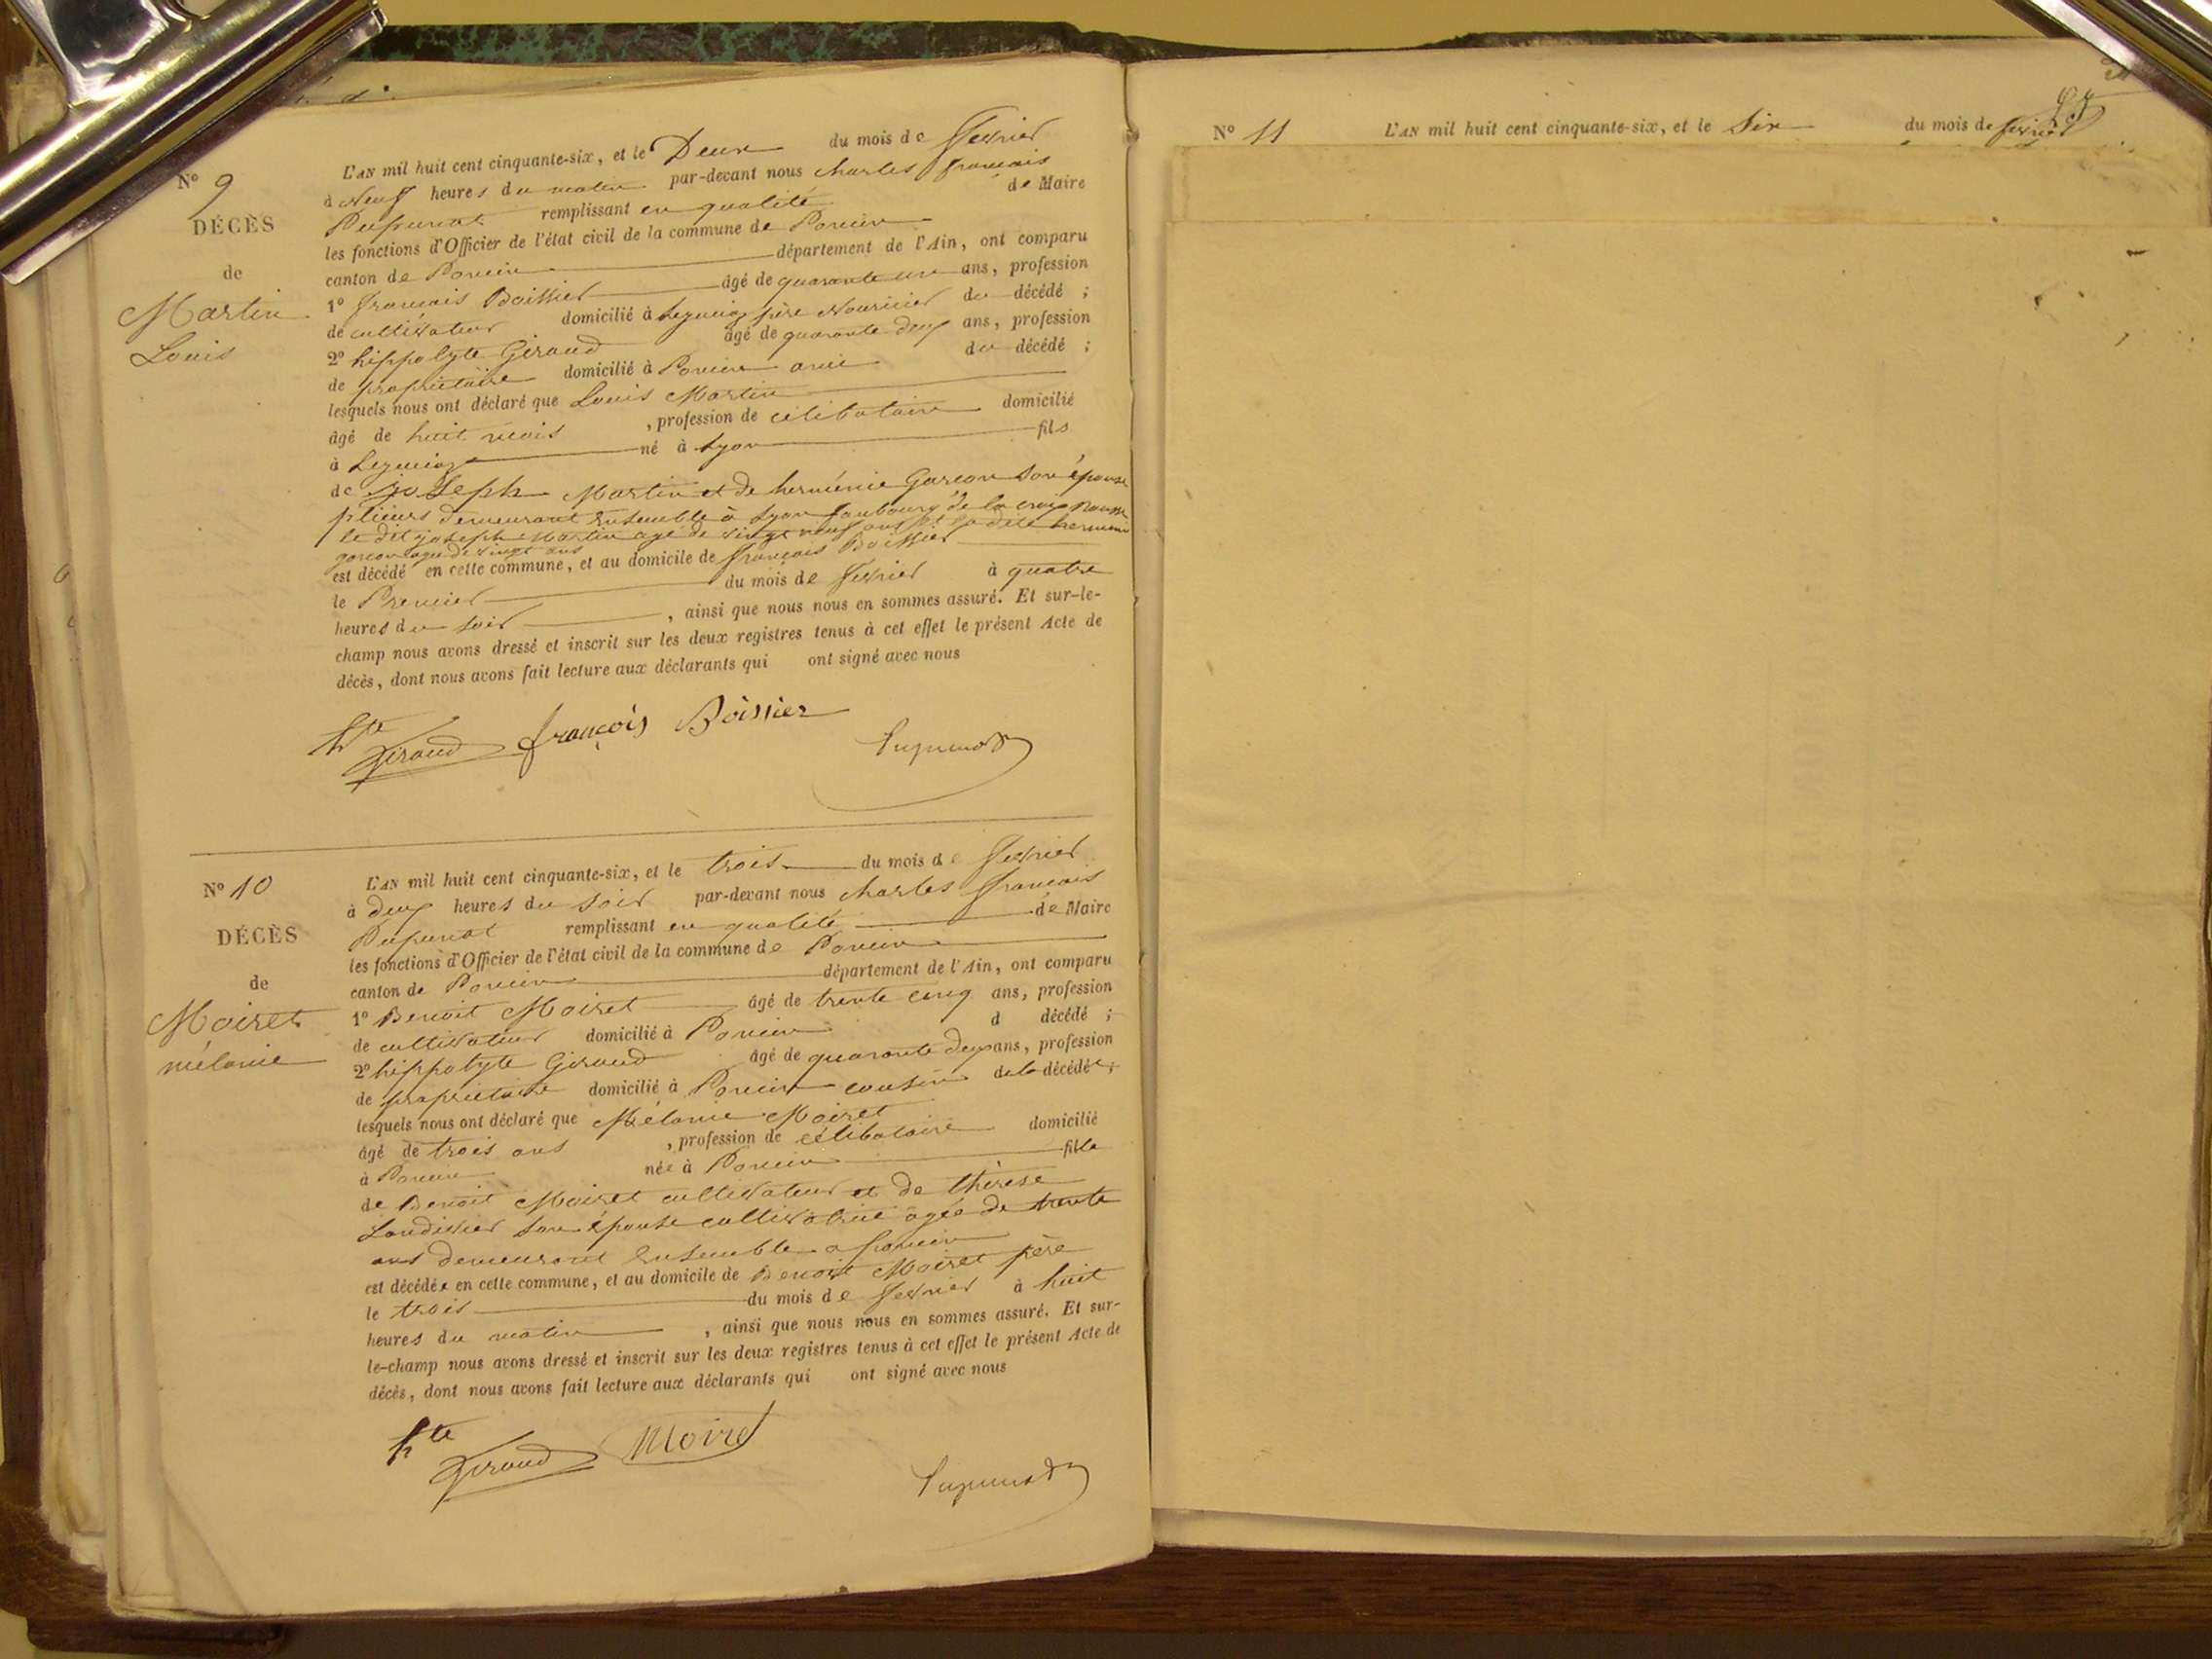 N° 9
DÉCÈS
de
Martin
Louis
L'AN mil huit cent cinquante-six, et le Deux du mois de fevrier
à Neuf heures du matin par-devant nous charles francais
remplissant en qualité de Maire
les fonctions d'Officier de l'état civil de la commune de Poncin
canton de Poncin département de l'Ain, ont comparu
1° francais Boissier âgé de quarante un ans, profession
de cultivateur domicilié à père Nouricier du décédé ;
2° hippolyte Giraud âgé de quarante deux ans, profession
de propriétaire domicilié à Poncin ami du décédé ;
lesquels nous ont déclaré que Louis Martin
âgé de huit mois , profession de célibataire domicilié
à né à Lyon fils
de joseph Martin et de herménie Garcon son épouse
demeurant ensemble à Lyon faubourg de la croix rousse
le dit joseph Martin agé de vingt neuf ans et la dite hermenie
garcon agée de vingt ans
est décédé en cette commune, et au domicile de francais Boissier
le Premier du mois de fevrier à quatre
heures du soir , ainsi que nous nous en sommes assuré. Et sur-le-
champ nous avons dressé et inscrit sur les deux registres tenus à cet effet le présent Acte de
décès, dont nous avons fait lecture aux déclarants qui ont signé avec nous
hte Giraud françois Boissier
N° 10
DÉCÈS
de
Moiret
mélanie
L'AN mil huit cent cinquante-six, et le trois du mois de fevrier
à deux heures du soir par-devant nous charles francais
remplissant en qualité de Maire
les fonctions d'Officier de l'état civil de la commune de Poncin
canton de Poncin département de l'Ain, ont comparu
1° Benoit Moiret âgé de trente cinq ans, profession
de cultivateur domicilié à Poncin d décédé ;
2° hippolyte Giraud âgé de quarante deux ans, profession
de propriétaire domicilié à Poncin cousin de la décédée ;
lesquels nous ont déclaré que Mélanie Moiret
âgé de trois ans , profession de célibataire domicilié
à Poncin née à Poncin fille
de Benoit Moiret cultivateur et de thérèse
son épouse cultivatrice agée de trente
ans demeurant ensemble a poncin
est décédée en cette commune, et au domicile de Benoit Moiret père
le trois du mois de fevrier à huit
heures du matin , ainsi que nous nous en sommes assuré. Et sur-
le-champ nous avons dressé et inscrit sur les deux registres tenus à cet effet le présent Acte de
décès, dont nous avons fait lecture aux déclarants qui ont signé avec nous
hte Giraud Moiret
N° 11 L'AN mil huit cent cinquante-six, et le Six du mois de fevrier